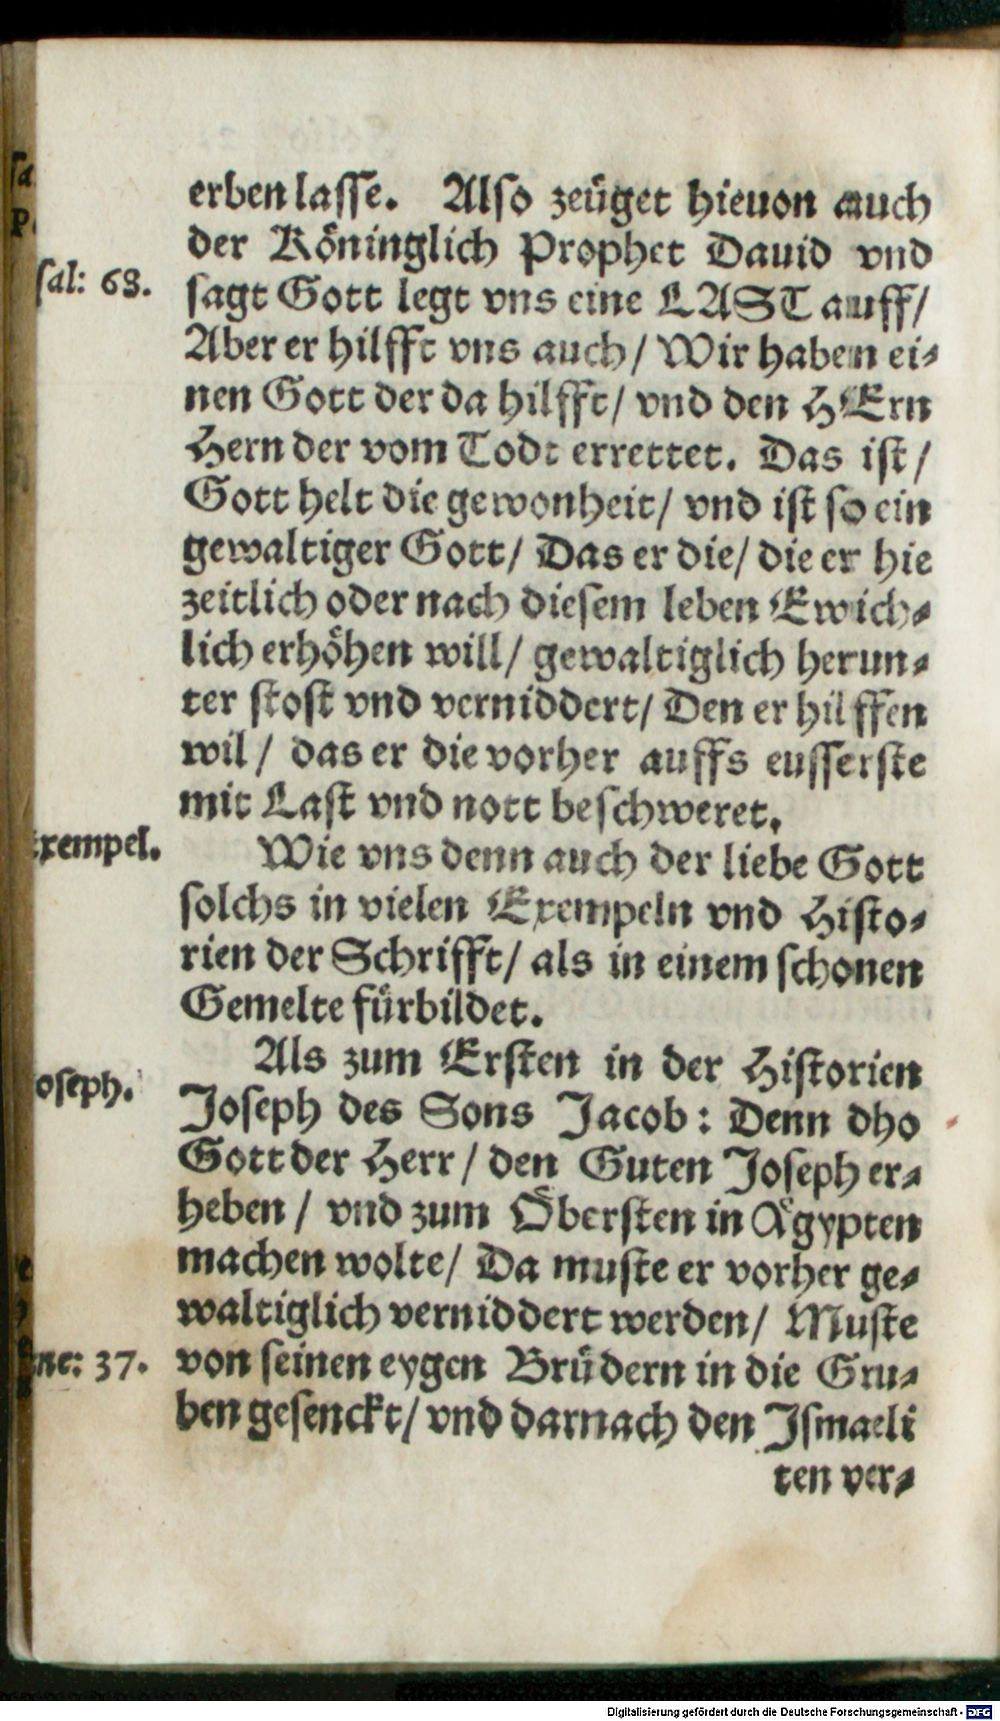 erben lasse. Also zeüget hieuon auch
der Köninglich Prophet Dauid vnd
sal: 68.
sagt Gott legt vns eine LAST auff/
Aber er hilfft vns auch/ Wir haben ei-
nen Gott der da hilfft/ vnd den HErn
Hern der vom Todt errettet. Das ist/
Gott helt die gewonheit/ vnd ist so ein
gewaltiger Gott/ Das er die/ die er hie
zeitlich oder nach diesem leben Ewich-
lich erhöhen will/ gewaltiglich herun-
ter stost vnd verniddert/ Den er hilffen
wil/ das er die vorher auffs eusserste
mit Last vnd nott beschweret.
xempel.
Wie vns denn auch der liebe Gott
solchs in vielen Exempeln vnd Histo-
rien der Schrifft/ als in einem schonen
Gemelte fürbildet.
Als zum Ersten in der Historien
oseph.
Joseph des Sons Jacob: Denn dho
Gott der Herr/ den Guten Joseph er-
heben/ vnd zum Öbersten in Ägypten
machen wolte/ Da muste er vorher ge-
waltiglich verniddert werden/ Muste
ne: 37.
von seinen eygen Brüdern in die Gru-
ben gesenckt/ vnd darnach den Ismaeli
ten ver-
Digitalisierung gefördert durch die Deutsche Forschungsgemeinschaft - DFG